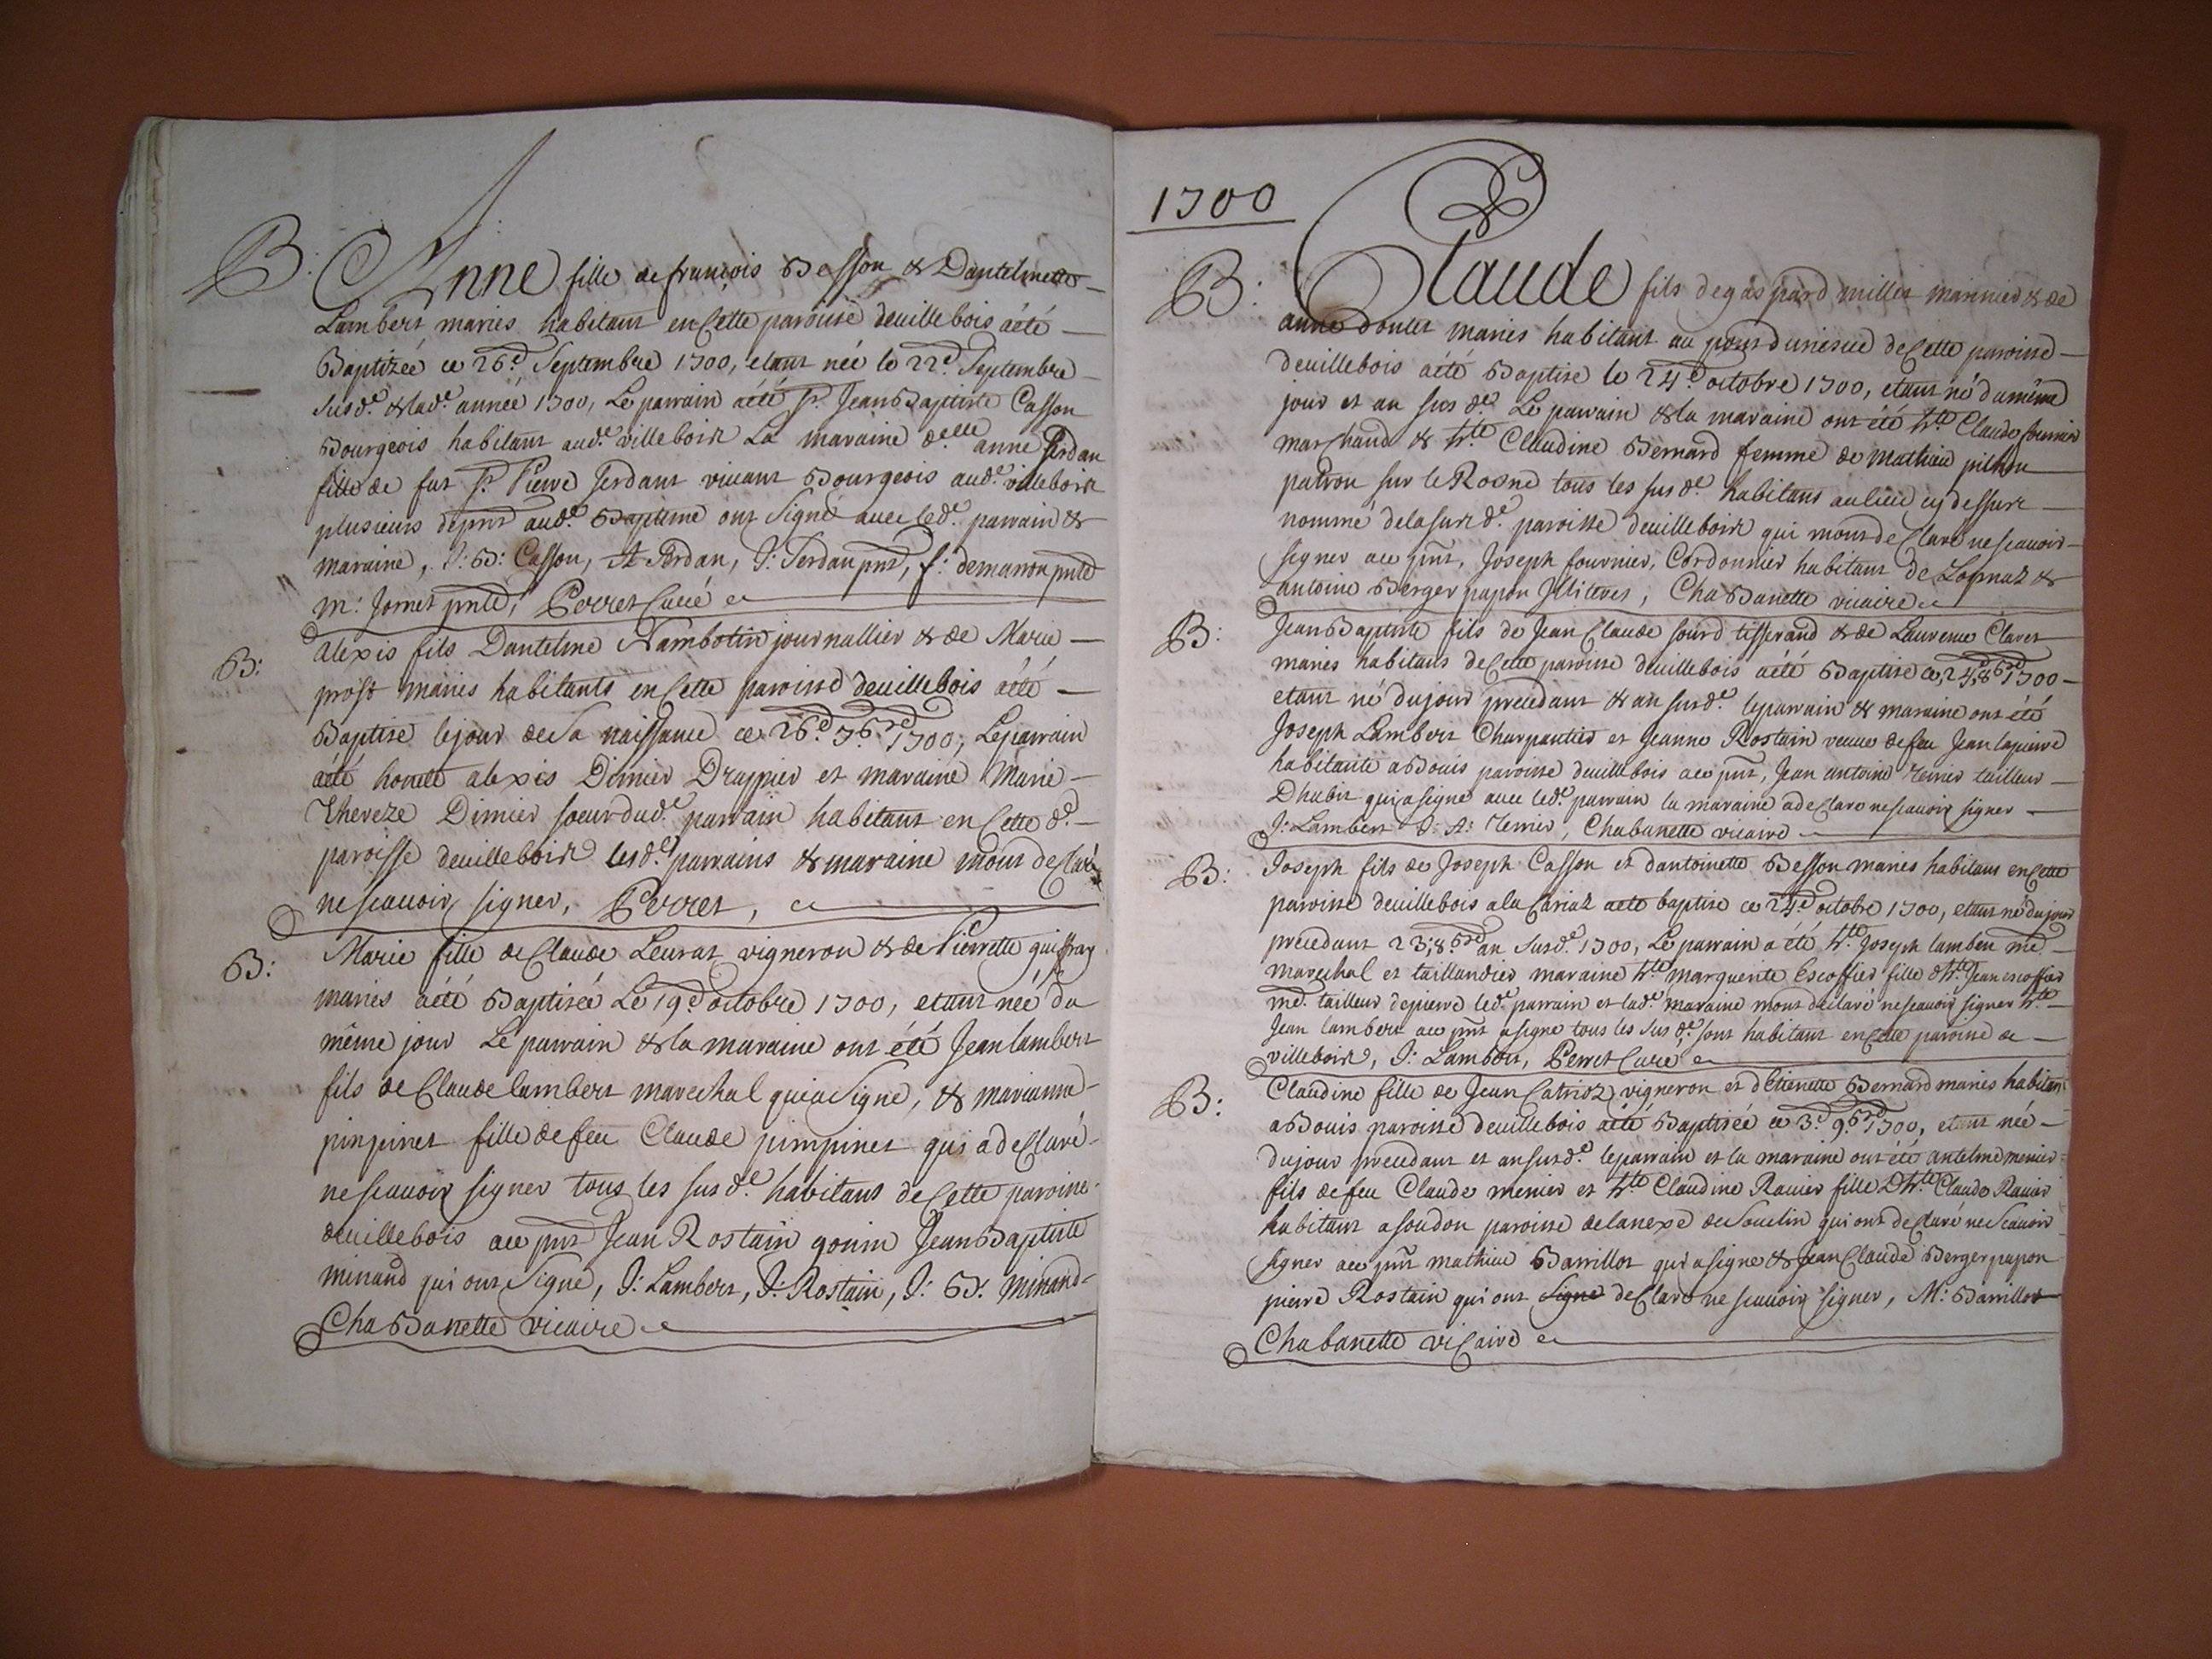 B: Anne fille de françois Besson & Dantelmette
Lambert mariés habitant en Cette paroisse deuillebois a été
Baptizée ce 26.e Septembre 1700, etant née le 22.e Septembre
susd.e & lad.e année 1700, Le parrain a été Sr. Jean Baptiste Casson
Bourgeois habitant aud.e villebois La maraine d.elle anne Serdan
fille de fut Sr. Pierre Serdant vivant Bourgeois aud.e villebois
plusieurs depnt aud.e Baptême ont signé avec led.e parrain &
maraine, J: B: Casson, A Serdan, J: Serdan pnt, f: demaron pnte
m: Jomet pnte, Perret Curé
B: alexis fils Dantelme Nambotin journallier & de Marie
prost mariés habitants en Cette paroisse deuillebois a été
Baptisé le jour de Sa naissance ce 26.e 7bre 1700, Le parrain
a été honete alexis Dimier Drappier et maraine Marie
Thereze Dimier soeur dud.e parrain habitant en Cette d.e
paroisse deuillebois lesd.e parrains & maraine m'ont déClaré
ne scauoir signer, Perret,
B: Marie fille de Claude Leurat vigneron & de Pierrette guiffray
mariés a été Baptisée Le 19.e octobre 1700, etant née du
même jour Le parrain & la maraine ont été Jean lambert
fils de Claude lambert marechal qui a Signé, & marianne
pinpinet fille de feu Claude pimpinet qui a deClaré
ne scauoir signer tous les susd.e habitans de Cette paroisse
deuillebois ace pnt Jean Rostain gonin Jean Baptiste
minand qui ont Signé, J: Lambert, J: Rostain, J: B: Minand
Chabanette vicaire
1700
B: Claude fils de gaspard millet marinier & de
anne doulet mariés habitant au de Cette paroisse
deuillebois a été Baptisé le 24.e octobre 1700, etant né du même
jour et an susd.e Le parrain & la maraine ont été hte Claude fournier
marchand & hte Claudine Bernard femme de Mathieu pithon
patron sur le Rosne tous les susd.e habitans au lieu cy dessus
nommé de la susd.e paroisse deuillebois qui m'ont deClaré ne scauoir
signer ace pnt, Joseph fournier, Cordonnier habitant de Lopnaz &
antoine Berger papon Illiteres, Chabanette vicaire
B: Jean Baptiste fils de Jean Claude sourd tisserand & de Laurence Claret
mariés habitans de Cette paroisse deuillebois a été Baptisé ce, 24.e 8bre 1700
etant né du jour precedant & an susd.e le parrain & maraine ont été
Joseph Lambert Charpantier et Jeanne Rostain veuue de feu Jean lapierre
habitante a Bouis paroisse deuillebois ace pnt, Jean antoine Terrier tailleur
Dhabit qui a signé avec led.e parrain la maraine a deClaré ne scauoir signer
J: Lambert J: A: Terrier, Chabanette vicaire
B: Joseph fils de Joseph Casson et dantoinette Besson mariés habitans en Cette
paroisse deuillebois a la Cariaz a été baptisé ce 24.e octobre 1700, etant né du jour
precedant 23; 8bre an susd.e 1700, Le parrain a été hte Joseph lambert me
marechal et taillandier maraine hte marguerite Escoffier fille d hte Jean escoffier
me tailleur de pierre led.e parrain et lad.e maraine m'ont declaré ne scauoir signer hte
Jean lambert ace pnt a signé tous les susd.e sont habitant en Cette paroisse de
villebois, J: Lambert, Perret Curé
B: Claudine fille de Jean Catrioz vigneron et détienette Bernard mariés habitan
a Bouis paroisse deuillebois a été Baptisée ce 3.e 9bre 1700, etant née
du jour precedant et an susd.e le parrain et la maraine ont été antelme menier
fils de feu Claude menier et hte Claudine Ravier fille D hte Claude Ravier
habitant a soudon paroisse de lanexe de Souclin qui ont deClaré ne Scauoir
signer ace pnt mathieu Barrillot qui a signé & Jean Claude Berger papon
pierre Rostain qui ont signé deClaré ne scauoir signer, M: Barrillot
Chabanette viCaire